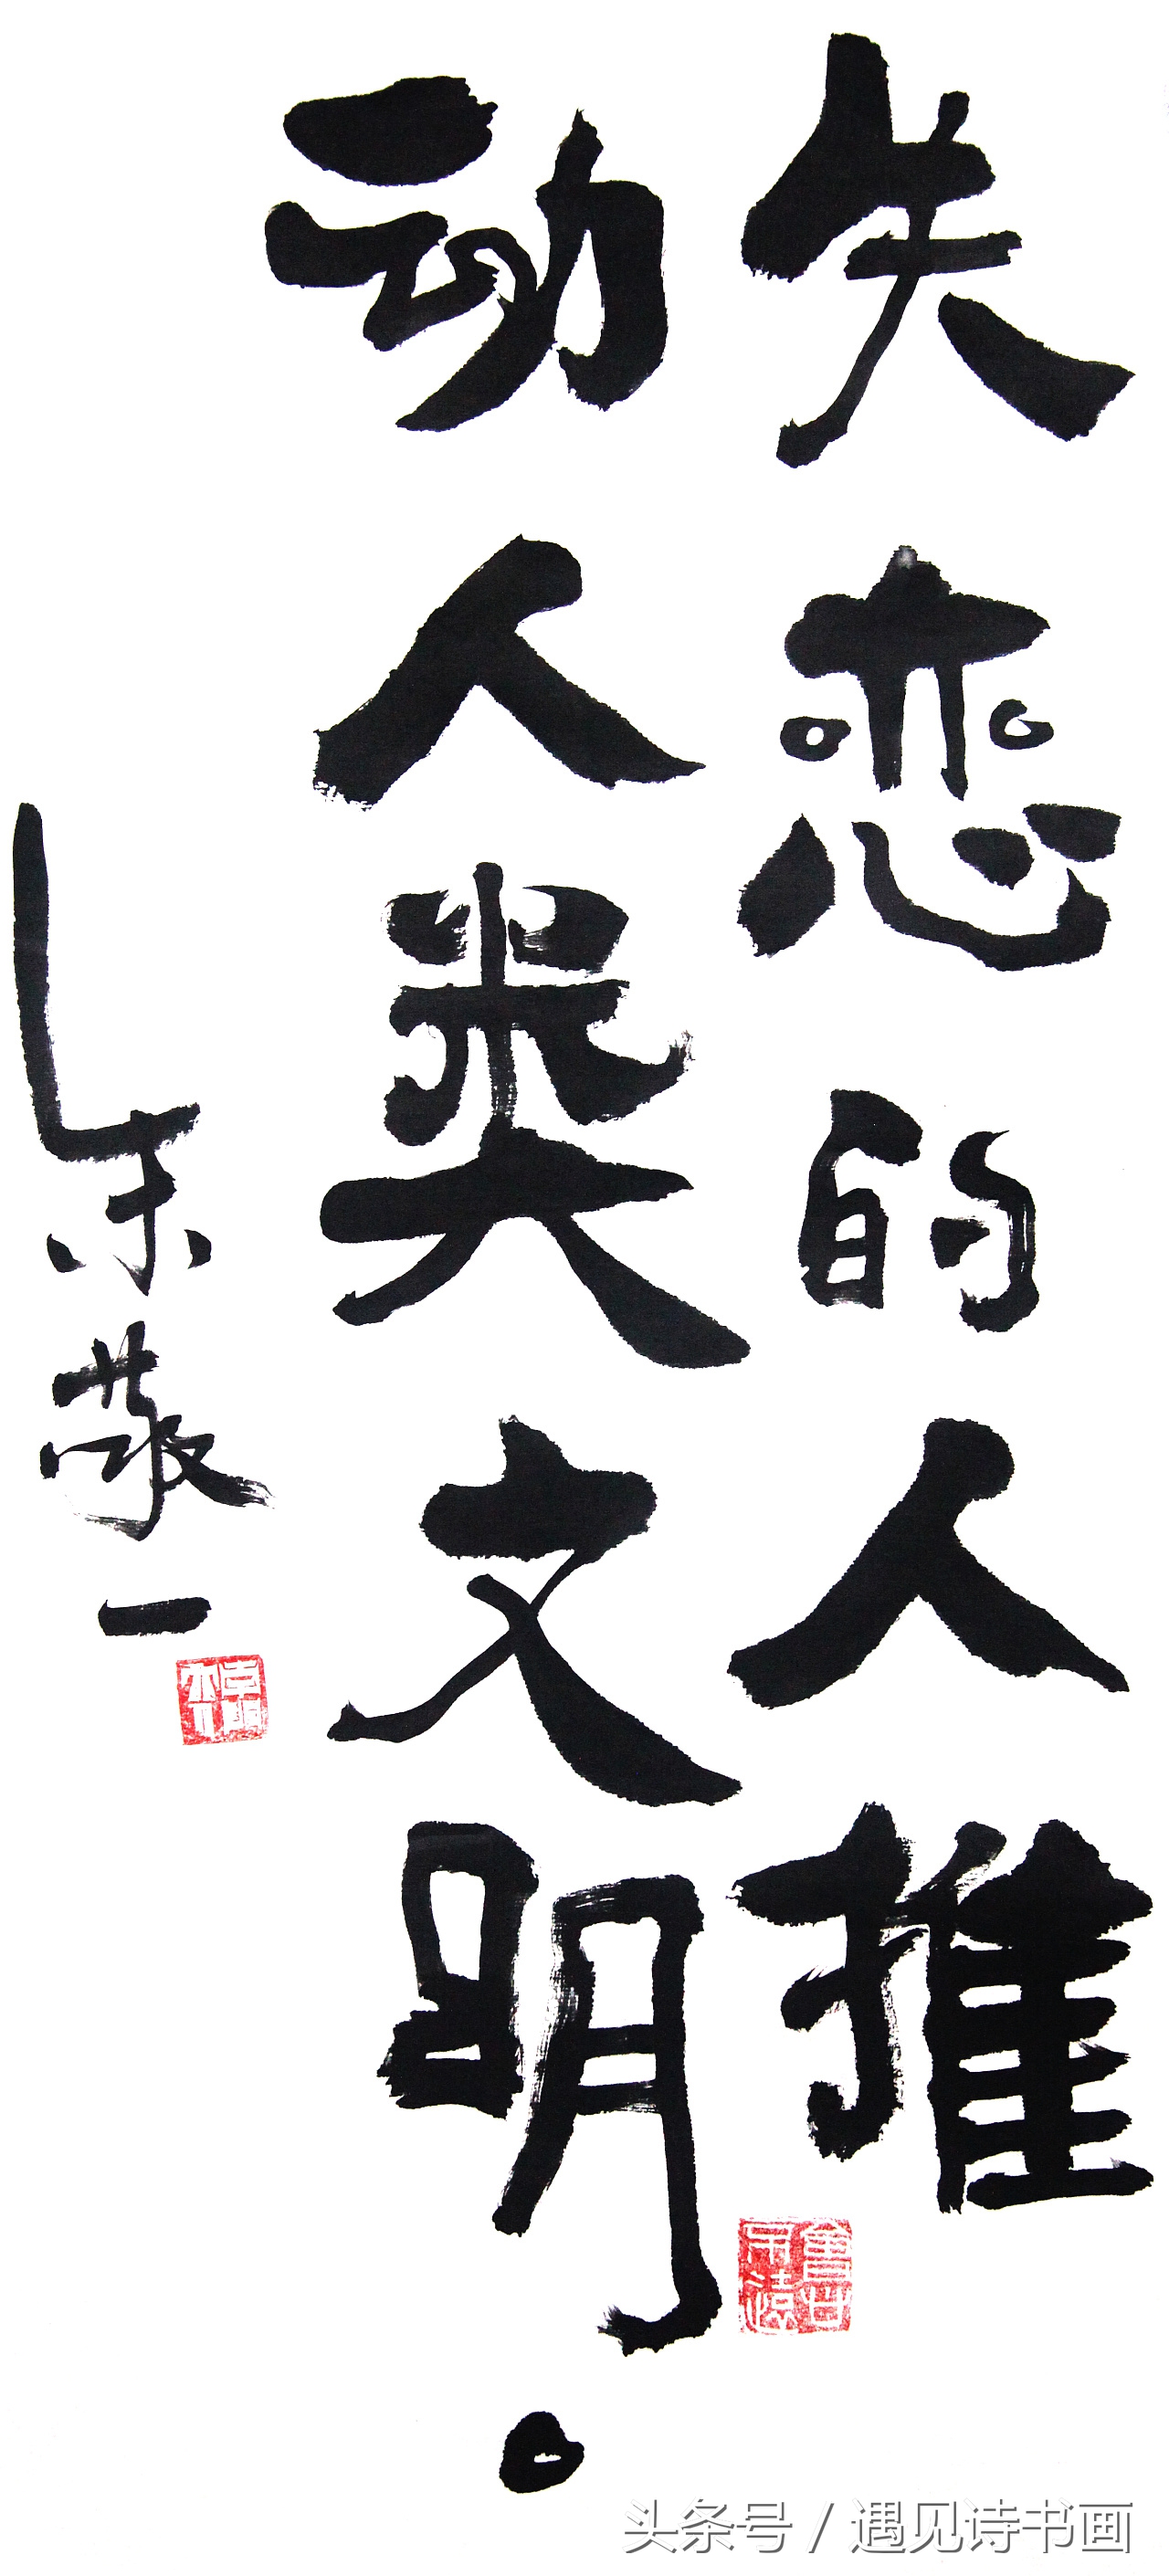 失恋的人推
动人类文明。
朱敬一
头条号 / 遇见诗书画